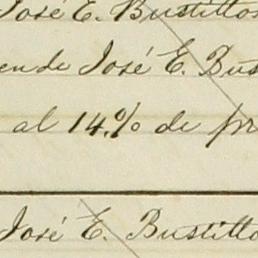 José E. Bustillos
ende José E. Bus
al 14% de pr
José E. Bustillo